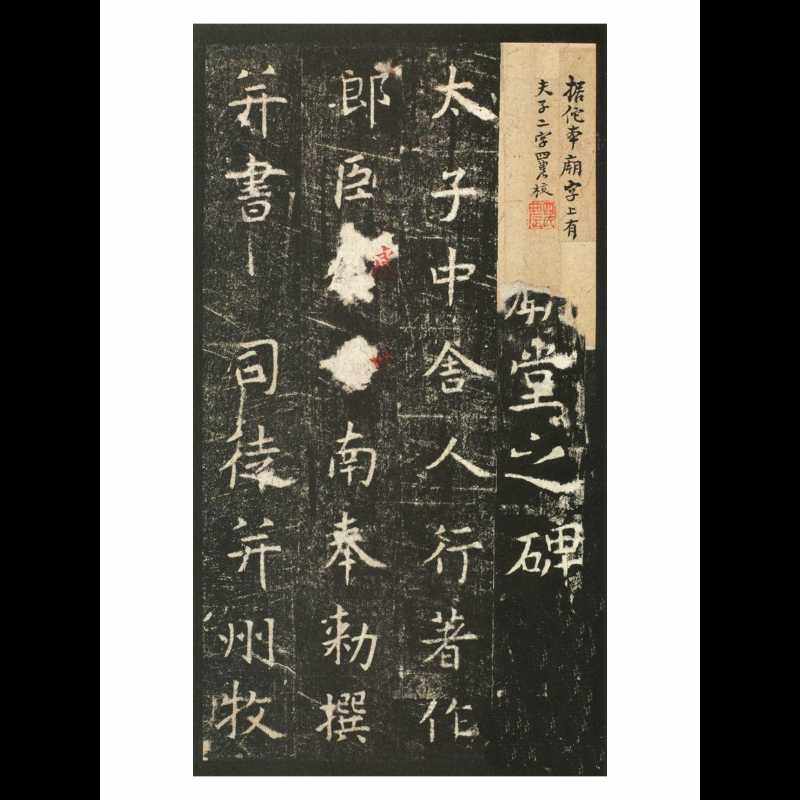 据佗本廟字上有
夫子二字校
廟堂之碑
太子中舍人行著作
郎臣南奉勅撰
并書 司徒并州牧